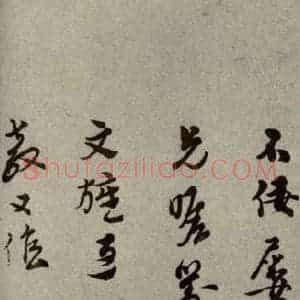 不佞屡
兄
文旌
教又值
shufaziliao.com